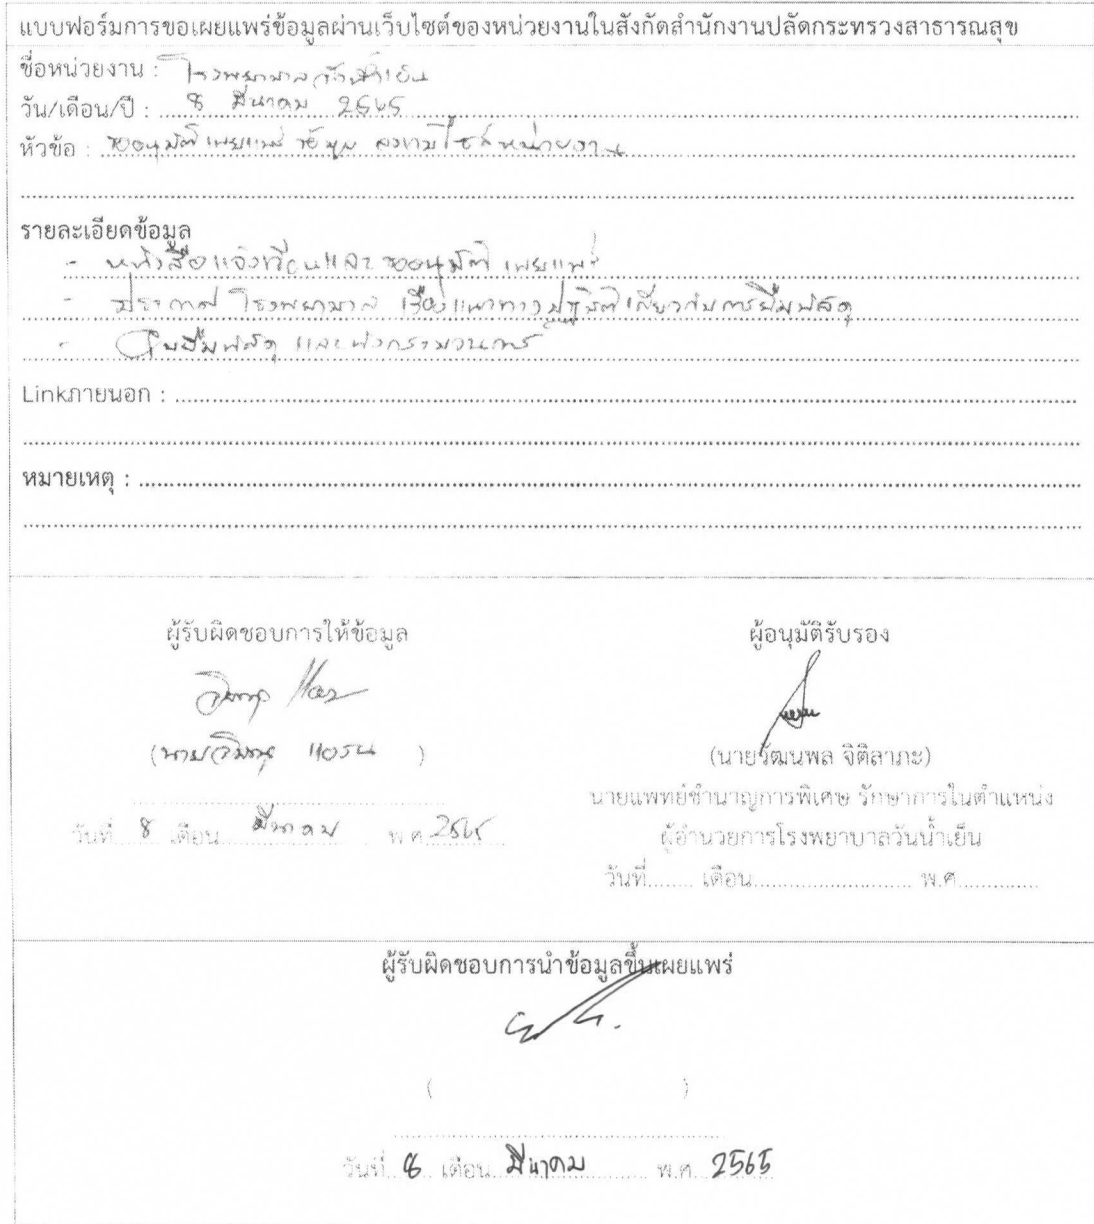 แบบฟอร์มการขอเผยแพร่ข้อมูลผ่านเว็บไซต์ของหน่วยงานในสังกัดสำนักงานปลัดกระทรวงสาธารณสุข
ชื่อหน่วยงาน : โรงพยาบาลวังน้ำเย็น
วัน/เดือน/ปี : 8 มีนาคม 2565
หัวข้อ : ขออนุมัติเผยแพร่ ข้อมูล ลงเวปไซด์หน่วยงาน
รายละเอียดข้อมูล
- หนังสือแจ้งเวียนและขออนุมัติ เผยแพร่
- ประกาศ โรงพยาบาล เรื่อง แนวทางปฏิบัติเกี่ยวกับการยืมพัสดุ
- ใบยืมพัสดุ และผังกระบวนการ
Linkภายนอก :
หมายเหตุ :
ผู้รับผิดชอบการให้ข้อมูล
(นาย )
วันที่ 8 เดือน มีนาคม พ.ศ. 2565
ผู้อนุมัติรับรอง
(นายวัฒนพล จิติลาภะ)
นายแพทย์ชำนาญการพิเศษ รักษาการในตำแหน่ง
ผู้อำนวยการโรงพยาบาลวันน้ำเย็น
วันที่........ เดือน........................... พ.ศ..............
ผู้รับผิดชอบการนำข้อมูลขึ้นเผยแพร่
( )
วันที่ 8 เดือน มีนาคม พ.ศ. 2565